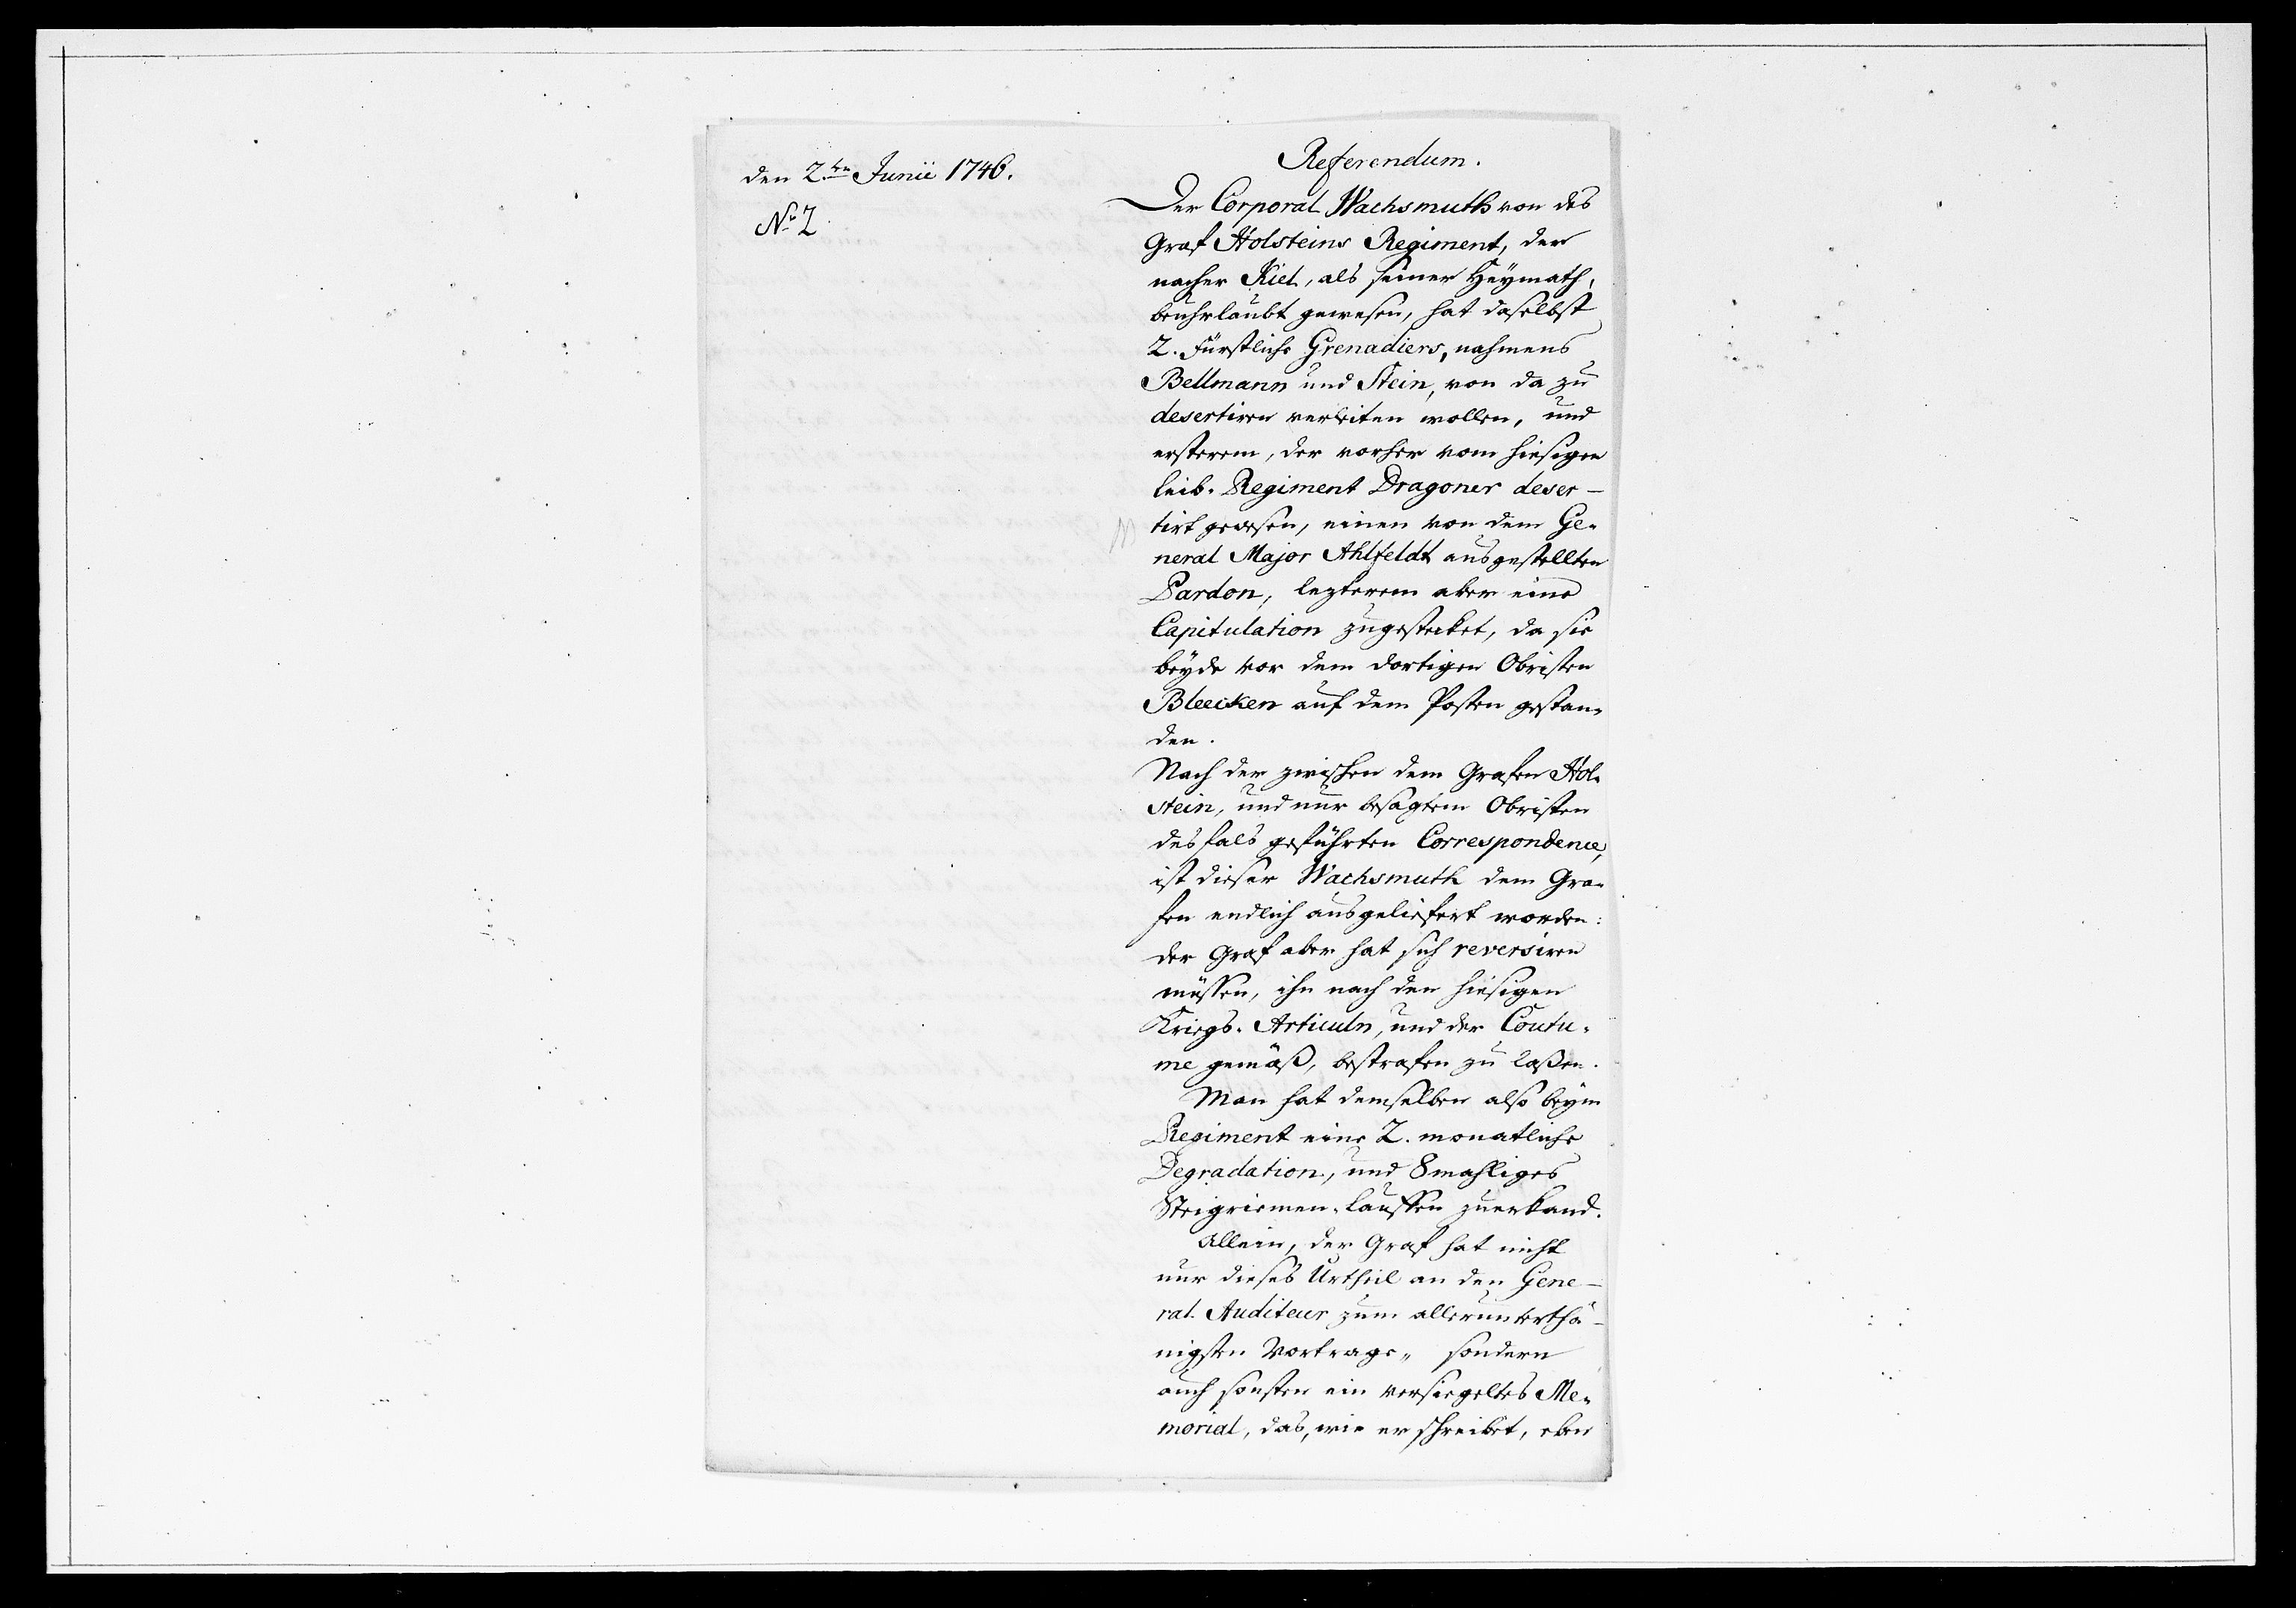 den 2.ten Junii 1746.
No 2.
Referendum.
Der Corporal Wachsmuth von des
Graf Holsteins Regiment, der
nacher Kiel, als seiner Heymath,
beuhrlaubt gewesen, hat daselbst
2. Fürstliche Grenadiers, nahmens
Bellmann und Stein, von da zu
desertiren verleiten wollen, und
ersterem, der vorher vom hiesigen
Leib-Regiment Dragoner deser-
tirt gewesen, einen von dem Ge-
neral Major Ahlfeldt ausgestellten
Pardon, lezterem aber eine
Capitulation zugestecket, da sie
beyde vor dem dortigen Obristen
Bleecken auf dem Posten gestan-
den.
Nach der zwischen dem Grafen Hol-
stein, und nur besagtem Obristen
desfals geführten Correspondence,
ist dieser Wachsmuth dem Gra-
fen endlich ausgeliefert worden:
der Graf aber hat sich reversiren
müssen, ihn nach den hiesigen
Kriegs-Articuln, und der Coutu-
me gemäß, bestrafen zu laßen.
Man hat demselben also beym
Regiment eine 2. monatliche
Degradation, und 8mahliges
Steigriemen-Lauffen zuerkand.
Allein, der Graf hat nicht
nur dieses Urtheil an den Gene-
ral-Auditeur zum allerunterthä-
nigsten Vortrage, sondern
auch sonsten ein versiegeltes Me-
morial, das, wie er schreibet, eben